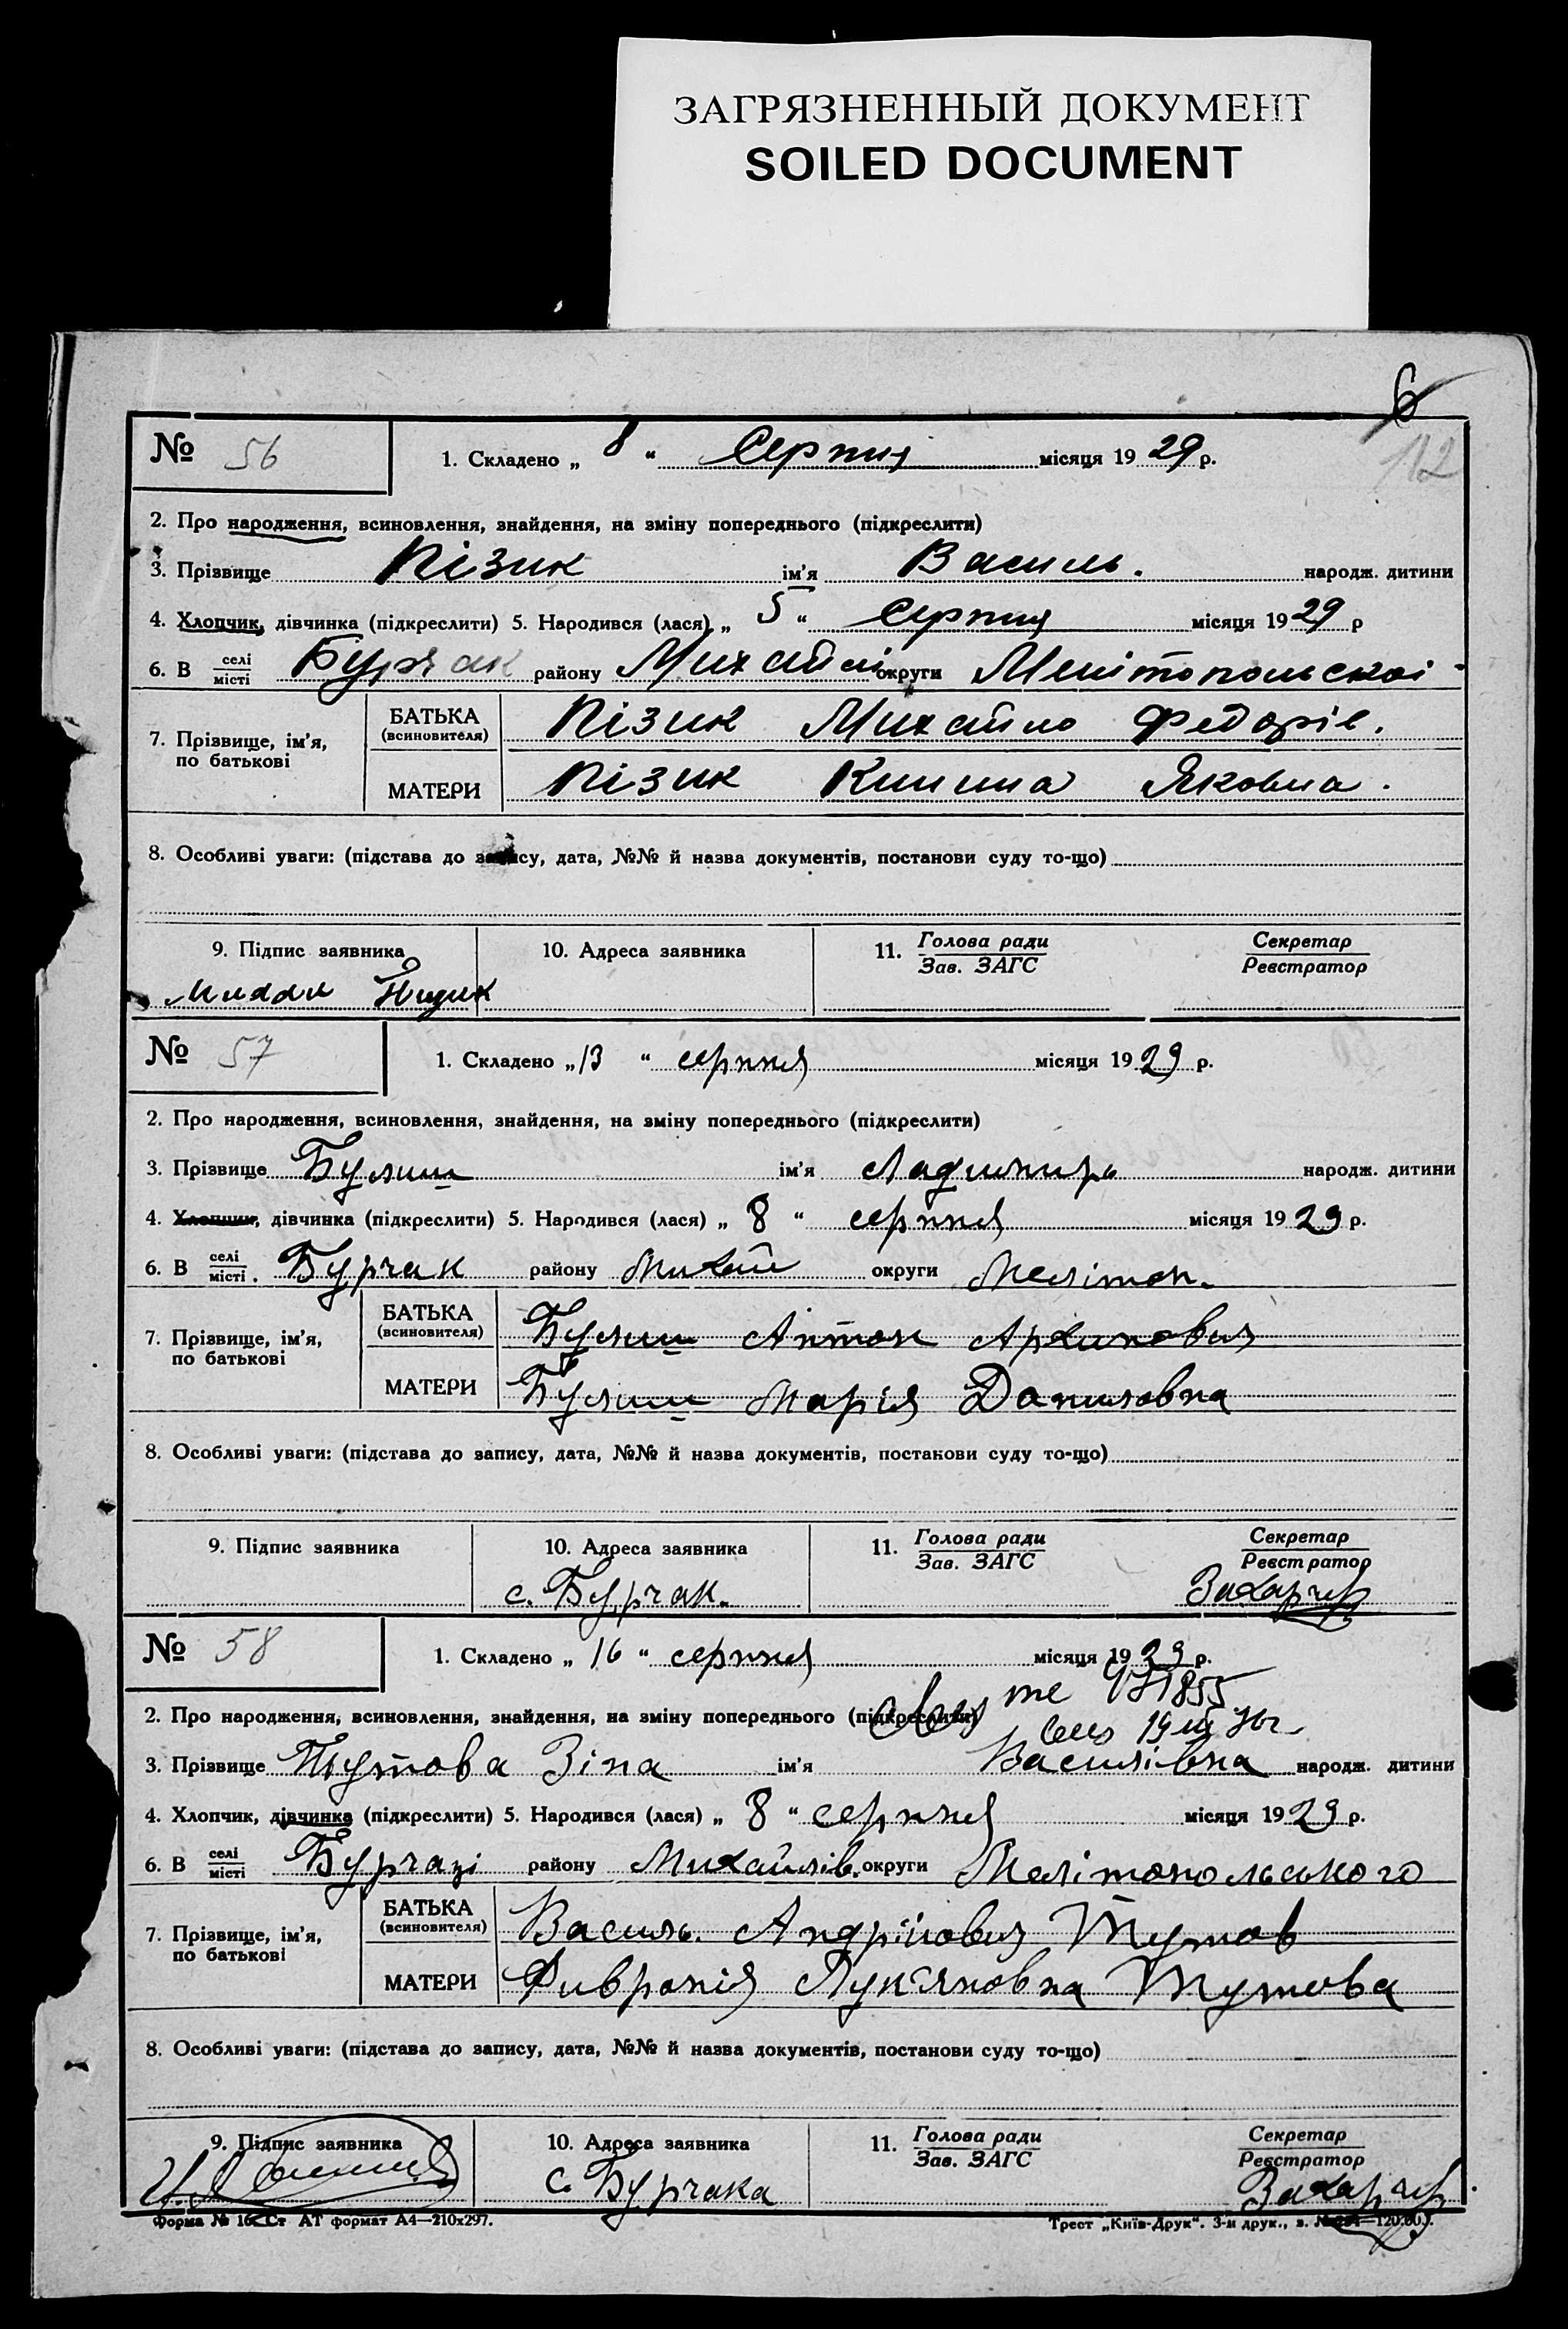 ЗАГРЯЗНЕННЫЙ ДОКУМЕНТ
SOILED DOCUMENT
6
112
№ 56 1. Складено „ 8 “ Серпня місяця 19 29 р.
2. Про народження, всиновлення, знайдення, на зміну попереднього (підкреслити)
3. Прізвище Пізик ім'я Василь. народж. дитини
4. Хлопчик, дівчинка (підкреслити) 5. Народився (лася) „ 5 “ Серпня місяця 19 29 р
6. В селі місті Бурчак району Михайлі округи Мелітопольскої
7. Прізвище, ім'я, по батькові БАТЬКА (всиновителя) Пізик Михайло Федорів.
МАТЕРИ Пізик Килина Яковна.
8. Особливі уваги: (підстава до запису, дата, №№ й назва документів, постанови суду то-що)
9. Підпис заявника 10. Адреса заявника 11. Голова ради Зав. ЗАГС Секретар Реєстратор
№ 57 1. Складено „ 13 “ серпня місяця 19 29 р.
2. Про народження, всиновлення, знайдення, на зміну попереднього (підкреслити)
3. Прізвище ім'я народж. дитини
4. Хлопчик, дівчинка (підкреслити) 5. Народився (лася) „ 8 “ серпня місяця 19 29 р.
6. В селі місті. Бурчак району Михай округи Мелітоп.
7. Прізвище, ім'я, по батькові БАТЬКА (всиновителя) Антон Архипович
МАТЕРИ Марія Даниловна
8. Особливі уваги: (підстава до запису, дата, №№ й назва документів, постанови суду то-що)
9. Підпис заявника 10. Адреса заявника 11. Голова ради Зав. ЗАГС Секретар Реєстратор
с. Бурчак. Захарчер
№ 58 1. Складено „ 16 “ серпня місяця 19 29 р.
2. Про народження, всиновлення, знайдення, на зміну попереднього (підкреслити)
3. Прізвище Тутова Зіна ім'я Василівна народж. дитини
4. Хлопчик, дівчинка (підкреслити) 5. Народився (лася) „ 8 “ серпня місяця 19 29 р.
6. В селі місті Бурчаці району Михайлів. округи Мелітопольського
7. Прізвище, ім'я, по батькові БАТЬКА (всиновителя) Василь Андрійович Тутов
МАТЕРИ Фивронія Лук'яновна Тутова
8. Особливі уваги: (підстава до запису, дата, №№ й назва документів, постанови суду то-що)
9. Підпис заявника 10. Адреса заявника 11. Голова ради Зав. ЗАГС Секретар Реєстратор
с. Бурчака Захарчер
Форма № 16. Ст АТ формат А4—210x297. Трест „Київ-Друк“. 3-я друк., з.